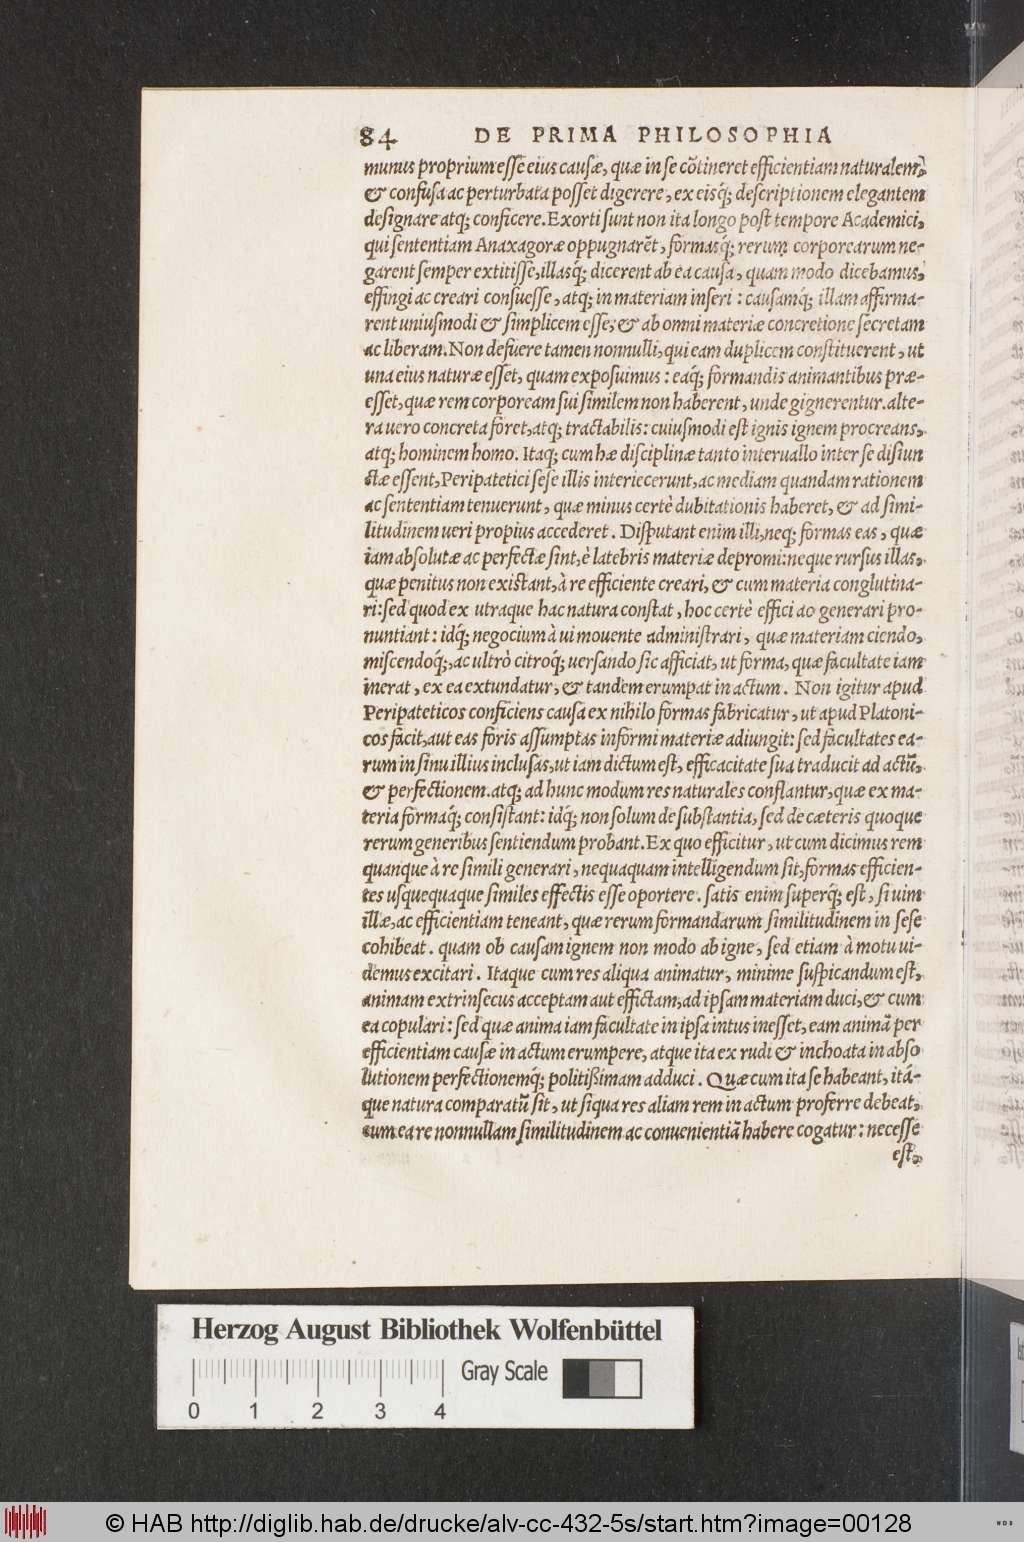 84 DE PRIMA PHILOSOPHIA
munus proprium esse eius causæ, quæ in se cõtineret efficientiam naturalem,
& confusa ac perturbata posset digerere, ex eisq́; descriptionem elegantem
designare atq; conficere. Exorti sunt non ita longo post tempore Academici,
qui sententiam Anaxagoræ oppugnarēt, formasq́; rerum corporearum ne-
garent semper extitisse, illasq́; dicerent ab ea causa, quam modo dicebamus,
effingi ac creari consuesse, atq; in materiam inseri: causamq́; illam affirma-
rent uniusmodi & simplicem esse, & ab omni materiæ concretione secretam
ac liberam. Non defuere tamen nonnulli, qui eam duplicem constituerent, ut
una eius naturæ esset, quam exposuimus: eaq́; formandis animantibus præ-
esset, quæ rem corpoream sui similem non haberent, unde gignerentur. alte-
ra uero concreta foret, atq; tractabilis: cuiusmodi est ignis ignem procreans,
atq; hominem homo. Itaq; cum hæ disciplinæ tanto interuallo inter se disiun
ctæ essent, Peripatetici sese illis interiecerunt, ac mediam quandam rationem
ac sententiam tenuerunt, quæ minus certè dubitationis haberet, & ad simi-
litudinem ueri propius accederet. Disputant enim illi, neq; formas eas, quæ
iam absolutæ ac perfectæ sint, è latebris materiæ depromi: neque rursus illas,
quæ penitus non existant, à re efficiente creari, & cum materia conglutina-
ri: sed quod ex utraque hac natura constat, hoc certè effici ac generari pro-
nuntiant: idq́; negocium à ui mouente administrari, quæ materiam ciendo,
miscendoq́;, ac ultrò citroq́; uersando sic afficiat, ut forma, quæ facultate iam
inerat, ex ea extundatur, & tandem erumpat in actum. Non igitur apud
Peripateticos conficiens causa ex nihilo formas fabricatur, ut apud Platoni-
cos facit, aut eas foris assumptas informi materiæ adiungit: sed facultates ea-
rum in sinu illius inclusas, ut iam dictum est, efficacitate sua traducit ad actũ,
& perfectionem. atq; ad hunc modum res naturales conflantur, quæ ex ma-
teria formaq́; consistant: idq́; non solum de substantia, sed de cæteris quoque
rerum generibus sentiendum probant. Ex quo efficitur, ut cum dicimus rem
quanque à re simili generari, nequaquam intelligendum sit, formas efficien-
tes usquequaque similes effectis esse oportere. satis enim superq́; est, si uim
illæ, ac efficientiam teneant, quæ rerum formandarum similitudinem in sese
cohibeat. quam ob causam ignem non modo ab igne, sed etiam à motu ui-
demus excitari. Itaque cum res aliqua animatur, minime suspicandum est,
animam extrinsecus acceptam aut effictam, ad ipsam materiam duci, & cum
ea copulari: sed quæ anima iam facultate in ipsa intus inesset, eam animã per
efficientiam causæ in actum erumpere, atque ita ex rudi & inchoata in abso
lutionem perfectionemq́; politißimam adduci. Quæ cum ita se habeant, itá-
que natura comparatũ sit, ut siqua res aliam rem in actum proferre debeat,
cum ea re nonnullam similitudinem ac conuenientiã habere cogatur: necesse
est,
Herzog August Bibliothek Wolfenbüttel
Gray Scale
0 1 2 3 4
© HAB http://diglib.hab.de/drucke/alv-cc-432-5s/start.htm?image=00128